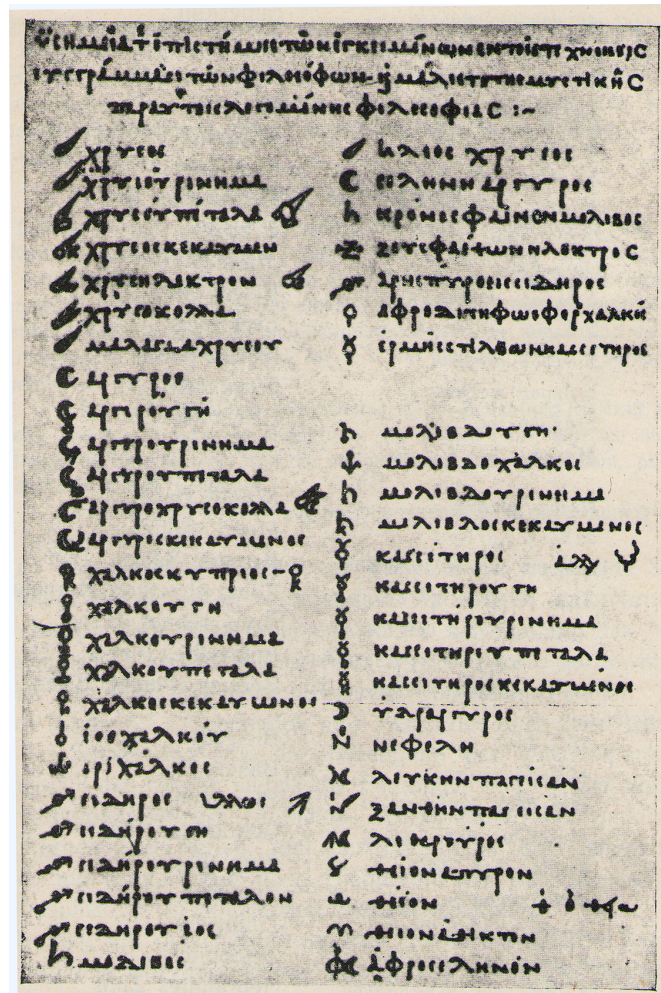 σημεῖα τ ἐπιστήμης τῶν ἐγκειμένων ἐν τοῖς τεχνικοῖς
συγγράμμασι τῶν φιλοσόφων μάλιστα τῆς μυστικῆς
παραυτοῖς λεγομένης φιλοσοφίας :~
χρυσος
χρυσού ρινημα
χρυσού πέταλα
χρυσος κεκαυμεν
χρυσηλεκτρον
χρυσοκολλα
μαλαγμα χρυσου
αργυρος
αργύρου γή
αργύρου ρινημα
αργυρου πεταλα
αργυροχρυσοκολλα
αργυρος κεκαυμενος
χαλκος κυπριος
χαλκου γη
χαλκου ρινημα
χαλκου πεταλα
χαλκος κεκαυμενος
ἰος χαλκοῦ
ορίχαλκος
σιδηρος
σιδήρου γη
σιδήρου ρινημα
σιδήρου πεταλον
σιδηρου ιος
μολιβος
ἡλιος χρυσος
σεληνη αργυρος
κρόνος φαίνων μολιβος
ζευς φαέθων ηλεκτρος
αρης πυρόεις σιδηρος
αφροδιτη φωσφορ χαλκή
ἑρμης στίλβων κασσιτηρος
μολίβδου γη
μολιβδοχαλκος
μολιβδου ρινημα
μολιβδος κεκαυμενος
κασσιτηρος
κασσιτηρου γη
κασσιτήρου ρινημα
κασσιτηρου πεταλα
κασσιτηρος κεκαυμένος
ὑδραργυρος
νεφελη
λευκην πασησαν
ξανθην παγεισαν
θειον απυρον
θεῖον
θειον αθικτον
ἀφροσεληνον